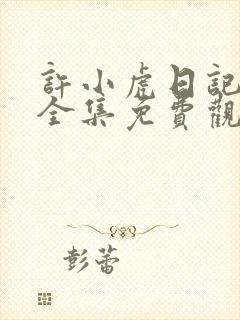 許小虎日記
全集免費觀
彭蕾